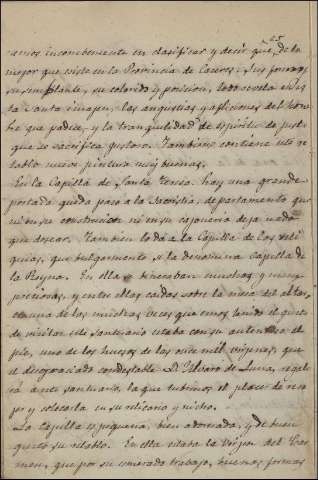 25
emos incombemente en clasificar y decir que és de lo
mejor que existe en la Provincia de Caceres. Sus formas,
su semblante, su colorido y posicion, todo revela en esta
Santa imagen, las angustias y aflicciones del hombre
que padece, y la tranquilidad de espiritu de justo
que se sacrifica gustoso. Tambien contiene este re
tablo unas pinturas muy buenas.
En la Capilla de Santa Teresa hay una grande
portada que da paso a la Sacristia, departamento que
ni en su construccion ni en su cajoneria deja nada
que desear. Tambien lo da a la Capilla de las reli
quias, que bulgarmente se la denomina Capilla de
la Reyna. En ella se beneraban muchas y muy
preciosas, y entre ellas caidas sobre la mesa del altar,
en una de las muchas veces que emos tenido el gusto
de visitar este santuario estaba con su autentica al
pie, uno de los huesos de las once mil virgenes, que
el desgraciado condestable D. Alvaro de Luna, regaló
a este santuario, la que tubimos el placer de reco
jer y colocarla en su relicario y nicho.
La Capilla es pequeña, bien adornada, y de buen
gusto su retablo. En ella estaba la Virgen del Car
men, que por su esmerado trabajo, buenas formas